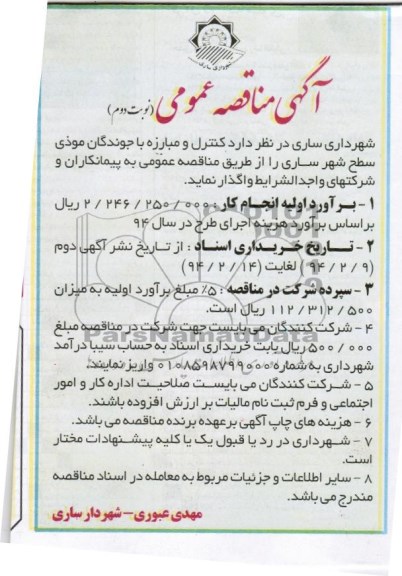 شهرداری ساری
آگهی مناقصه عمومی (نوبت دوم)
شهرداری ساری در نظر دارد کنترل و مبارزه با جوندگان موذی
سطح شهر ساری را از طریق مناقصه عمومی به پیمانکاران و
شرکتهای واجدالشرایط واگذار نماید.
۱ - برآورد اولیه انجام کار : ۲/۲۴۶/۲۵۰/۰۰۰ ریال
براساس برآورد هزینه اجرای طرح در سال ۹۴
۲ - تاریخ خریداری اسناد : از تاریخ نشر آگهی دوم
(۹۴/۲/۹) لغایت (۹۴/۲/۱۴)
۳ - سپرده شرکت در مناقصه : ۵٪ مبلغ برآورد اولیه به میزان
۱۱۲/۳۱۲/۵۰۰ ریال است.
۴ - شرکت کنندگان می بایست جهت شرکت در مناقصه مبلغ
۵۰۰/۰۰۰ ریال بابت خریداری اسناد به حساب سیبا درآمد
شهرداری به شماره ۰۱۰۸۵۹۸۷۹۹۰۰۰ واریز نمایند.
۵ - شرکت کنندگان می بایست صلاحیت اداره کار و امور
اجتماعی و فرم ثبت نام مالیات بر ارزش افزوده باشند.
۶ - هزینه های چاپ آگهی برعهده برنده مناقصه می باشد.
۷ - شهرداری در رد یا قبول یک یا کلیه پیشنهادات مختار
است.
۸ - سایر اطلاعات و جزئیات مربوط به معامله در اسناد مناقصه
مندرج می باشد.
مهدی عبوری - شهردار ساری
ParsNamadData